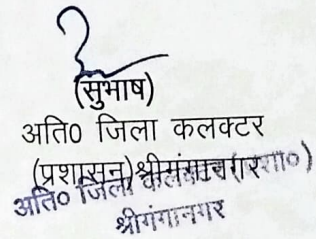 (सुभाष)
अति० जिला कलक्टर
(प्रशासन)श्रीगंगानगर
अति० जिला कलक्टर (प्रशा०)
श्रीगंगानगर